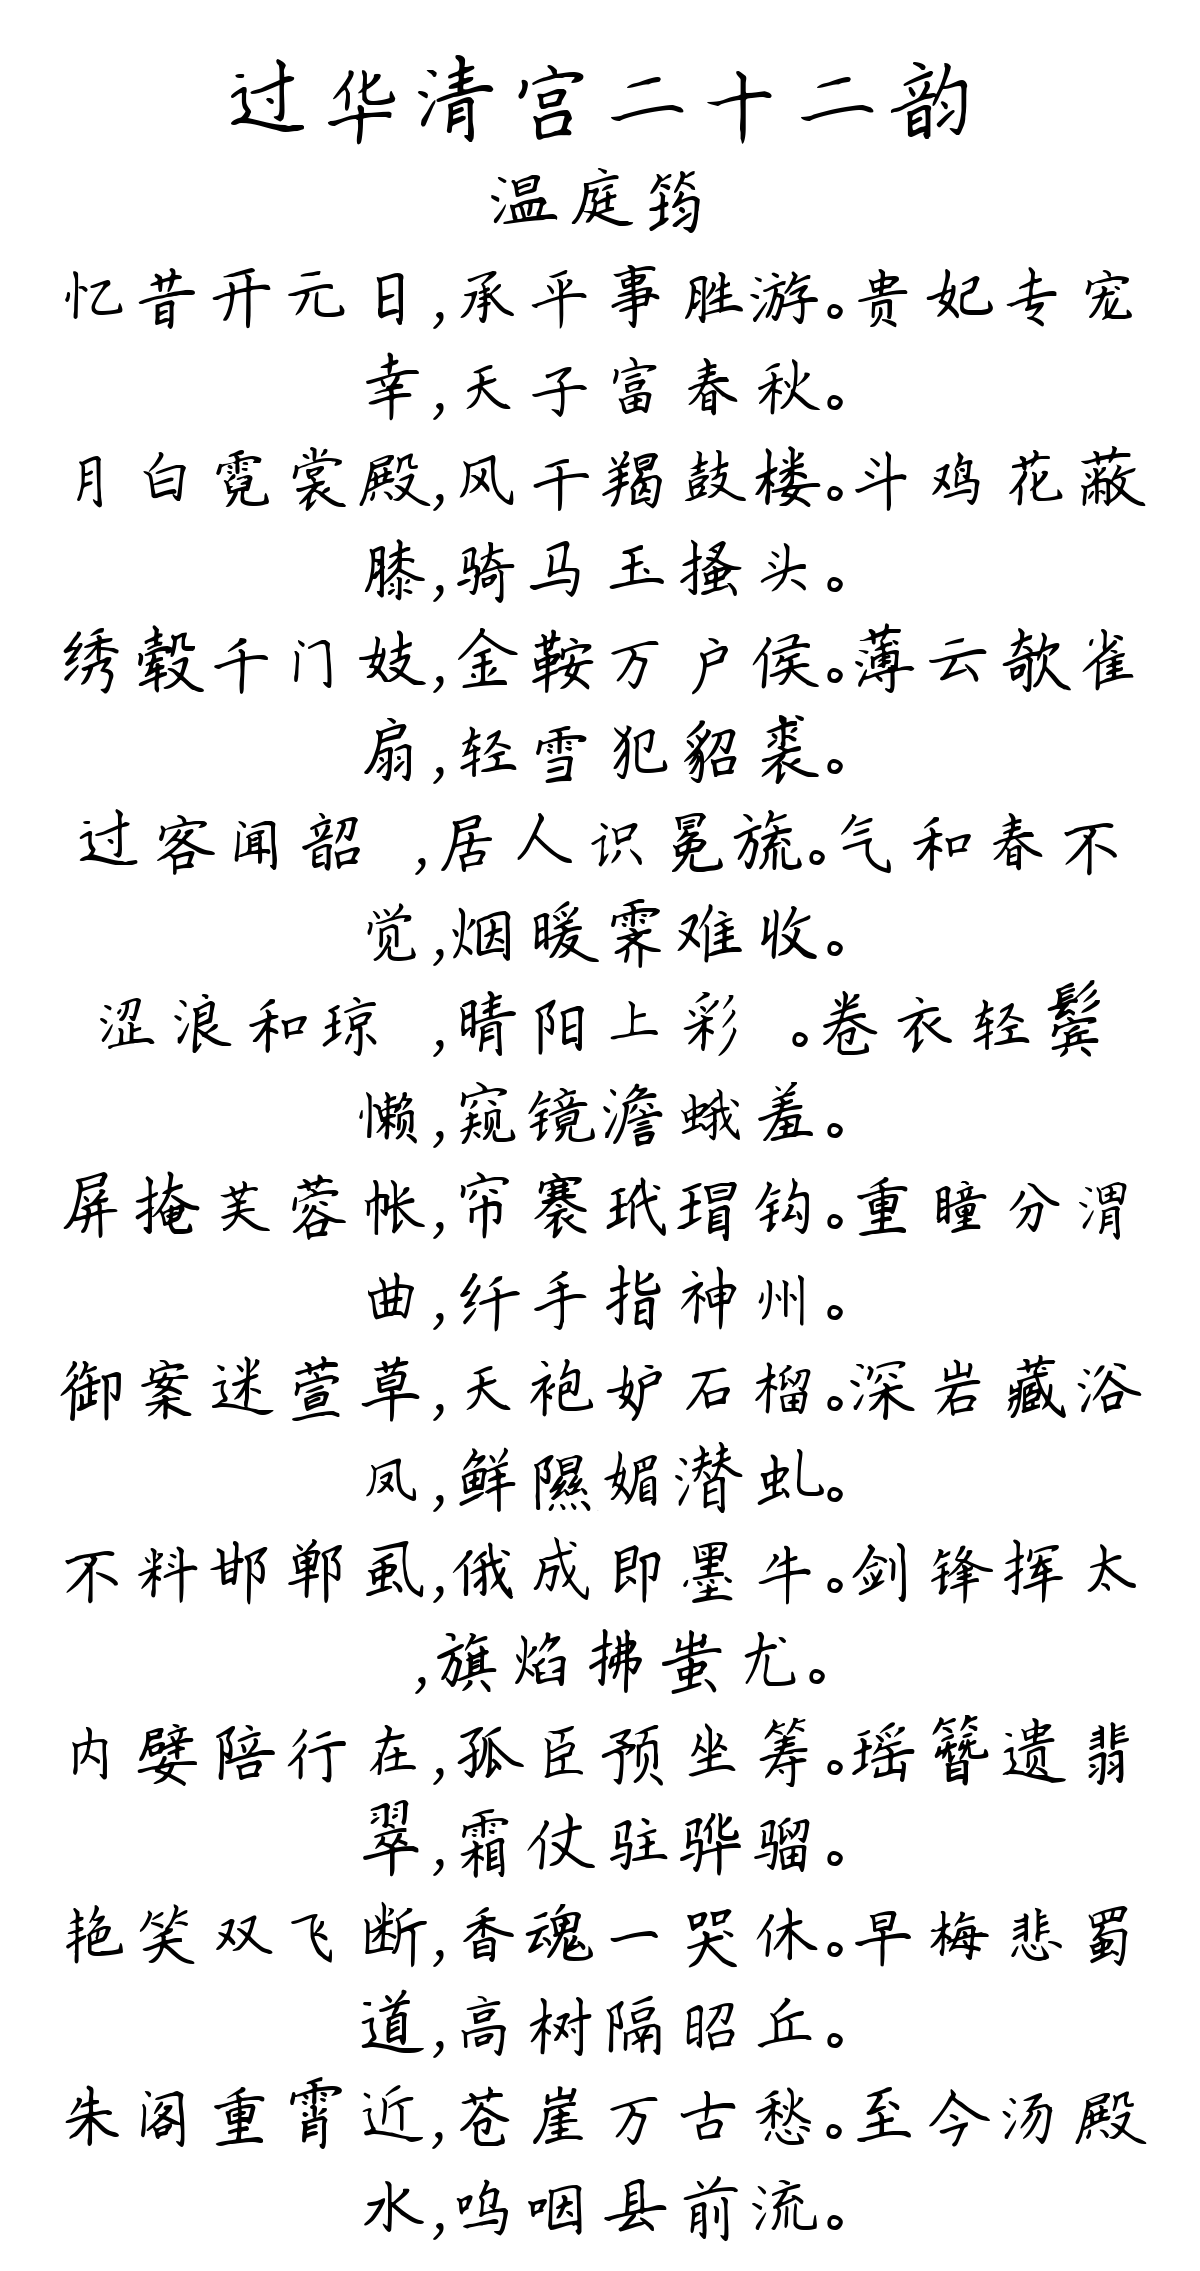 过华清宫二十二韵
温庭筠
忆昔开元日,承平事胜游。贵妃专宠
幸,天子富春秋。
月白霓裳殿,风干羯鼓楼。斗鸡花蔽
膝,骑马玉搔头。
绣毂千门妓,金鞍万户侯。薄云欹雀
扇,轻雪犯貂裘。
过客闻韶 ,居人识冕旒。气和春不
觉,烟暖霁难收。
涩浪和琼 ,晴阳上彩 。卷衣轻鬓
懒,窥镜澹蛾羞。
屏掩芙蓉帐,帘褰玳瑁钩。重瞳分渭
曲,纤手指神州。
御案迷萱草,天袍妒石榴。深岩藏浴
凤,鲜隰媚潜虬。
不料邯郸虱,俄成即墨牛。剑锋挥太
,旗焰拂蚩尤。
内嬖陪行在,孤臣预坐筹。瑶簪遗翡
翠,霜仗驻骅骝。
艳笑双飞断,香魂一哭休。早梅悲蜀
道,高树隔昭丘。
朱阁重霄近,苍崖万古愁。至今汤殿
水,呜咽县前流。